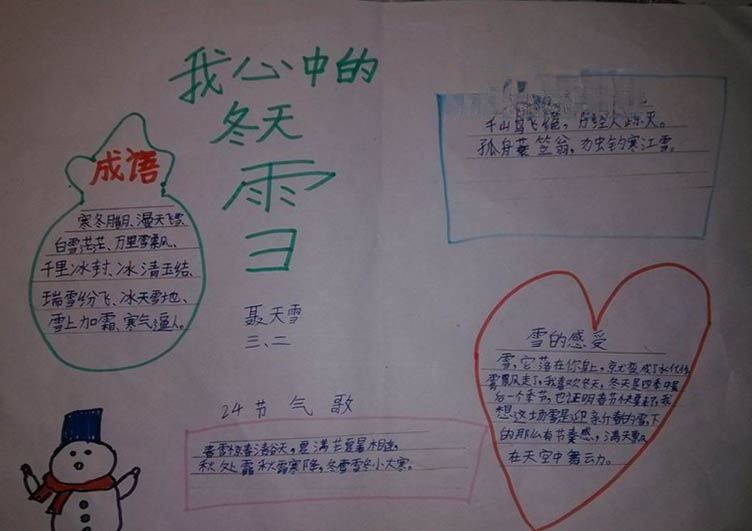 我心中的
冬天
雪
成语
寒冬腊月、漫天飞雪
白雪茫茫、万里雪飘、
千里冰封、冰清玉结、
瑞雪纷飞、冰天雪地、
雪上加霜、寒气逼人。
聂天雪
三、二
千山鸟飞绝，万径人踪灭。
孤舟蓑笠翁，独钓寒江雪。
24节气歌
春雨惊春清谷天，夏满芒夏暑相连，
秋处露秋霜寒降，冬雪雪冬小大寒。
雪的感受
雪，它落在你身上，就变成了水化作
雪飘风走了，我喜欢冬天，冬天是四季中最
后一个季节，也证明春节快要来了，我
想这场雪是迎新春的雪，下
的那么有节奏感，满天飘
在天空中舞动。